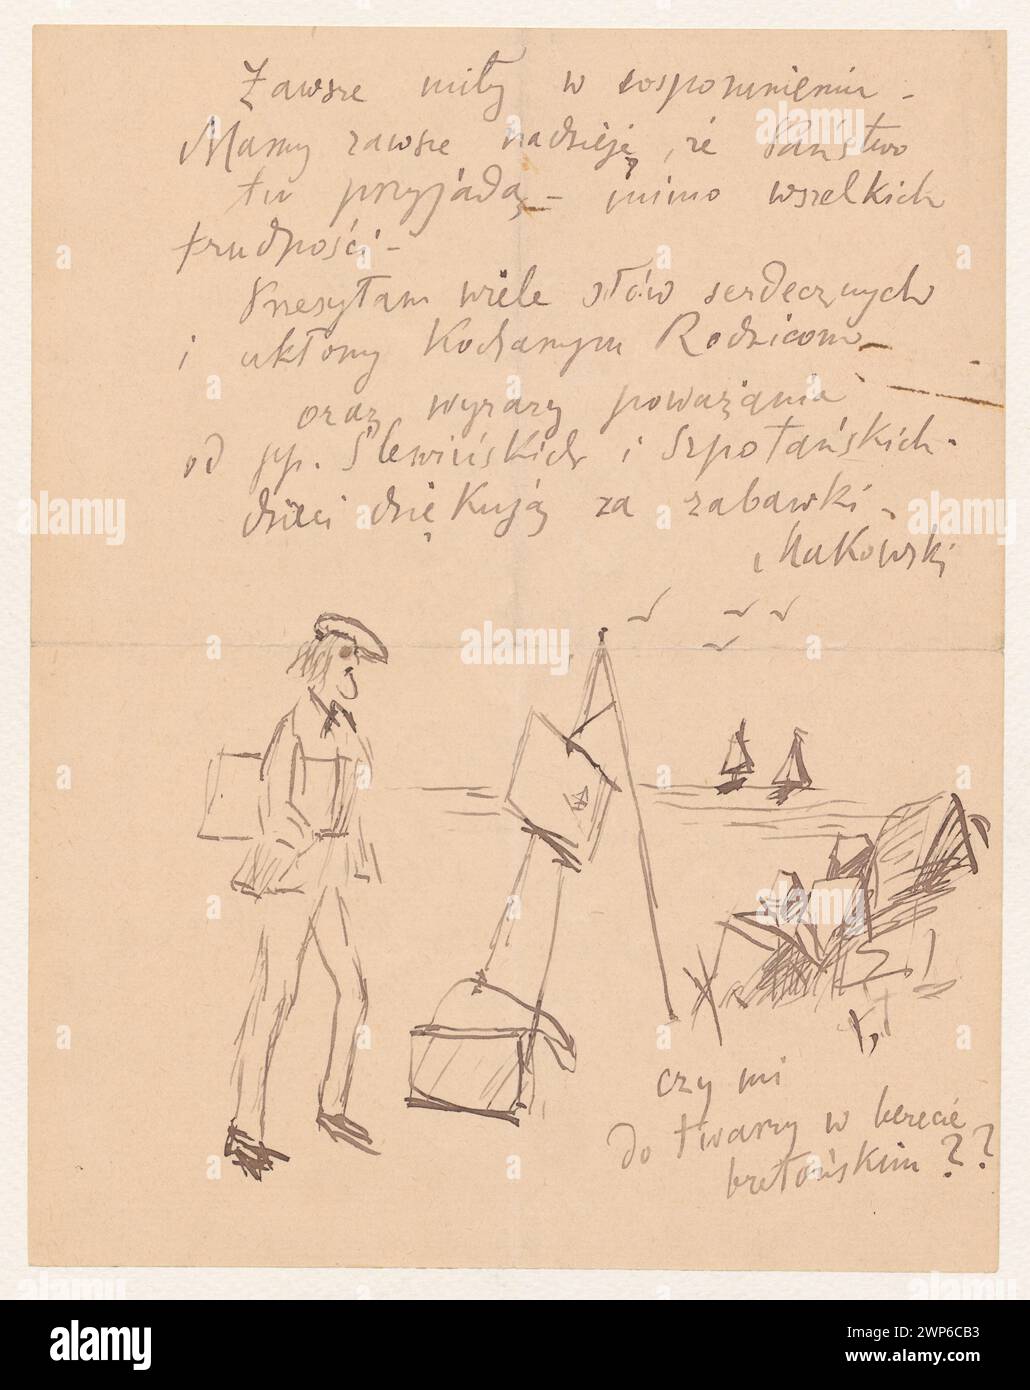 Zawsze miły w wspomnieniu -
Mamy zawsze nadzieję, że Państwo
tu przyjadą - mimo wszelkich
trudności -
Przesyłam wiele słów serdecznych
i ukłony Kochanym Rodzicom -
oraz wyrazy poważania
od pp. Slewińskich i Szpotańskich -
dzieci dziękują za zabawki -
Makowski
czy mi
do twarzy w berecie
bretońskim ??
alamy
Image ID: 2WP6CB3
www.alamy.com